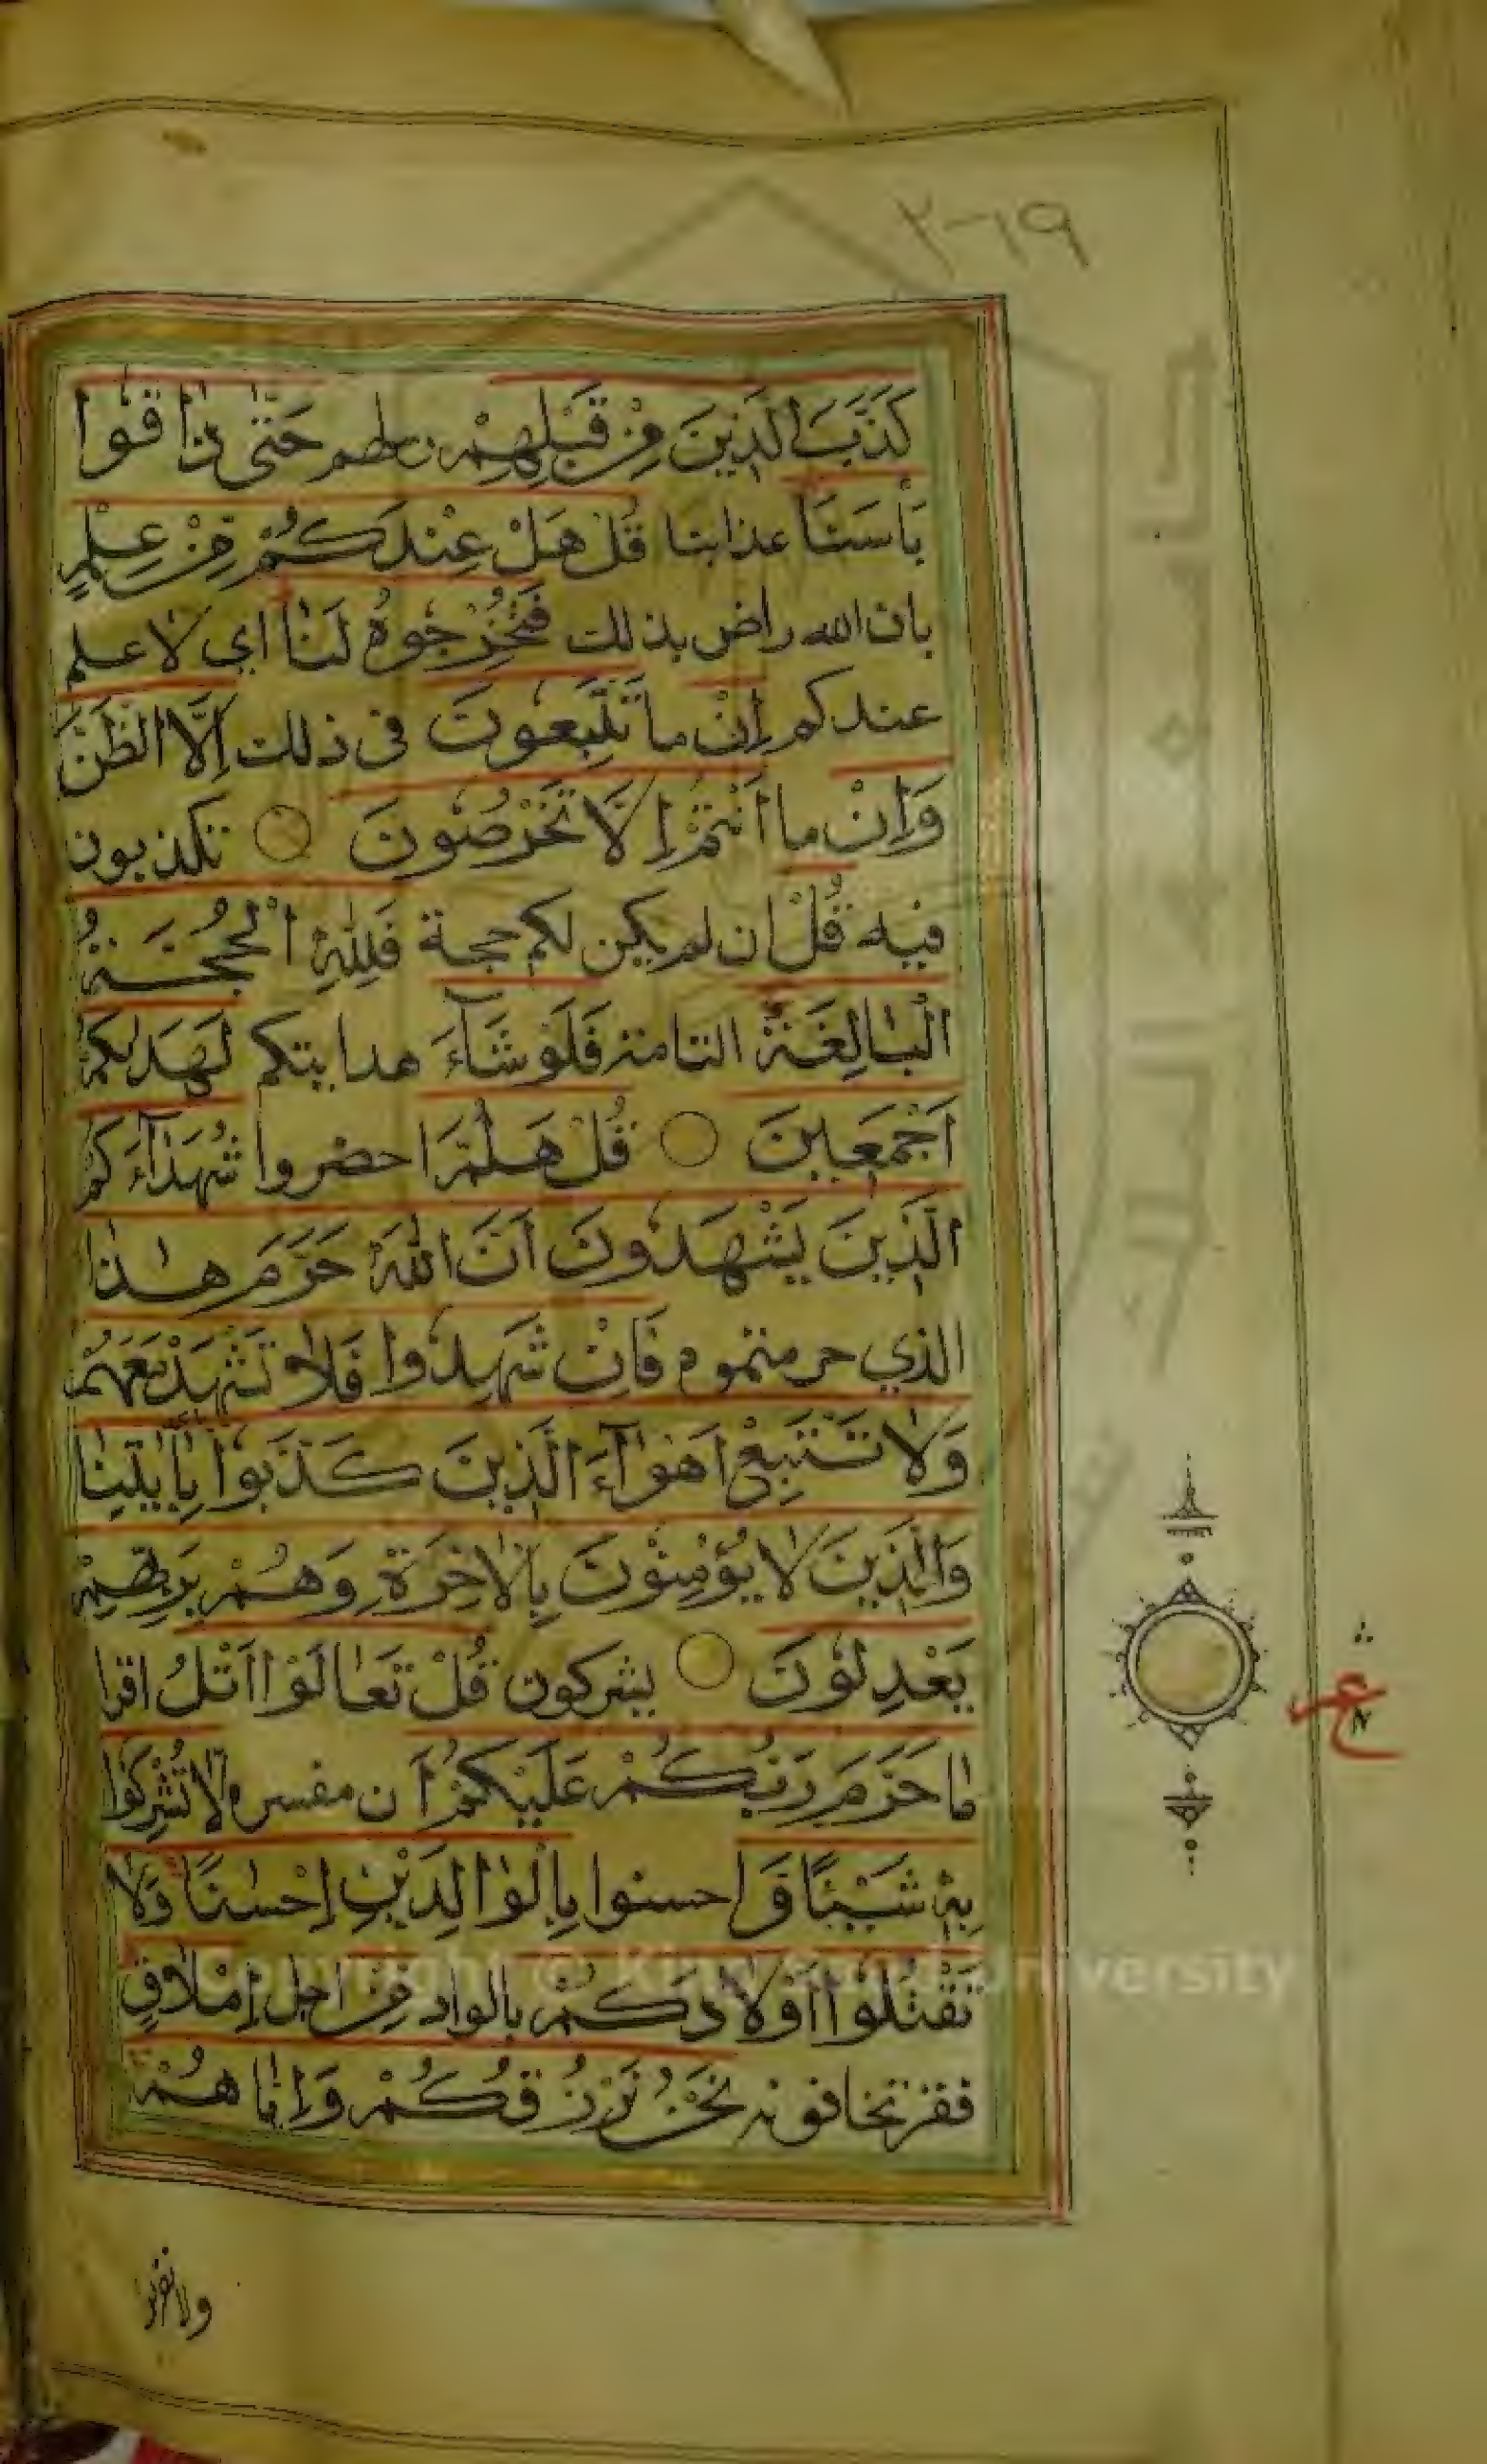 ٢-١٩
كَذَّبَ الَّذِينَ مِنْ قَبْلِهِمْ رسلهم حَتّٰى ذٰاقُوا
بَأْسَنٰا عذابنا قُلْ هَلْ عِنْدَكُمْ مِنْ عِلْمٍ
بان الله راض بذلك فَتُخْرِجُوهُ لَنٰا اي لا علم
عندكم اِنْ ما تَتَّبِعُونَ فى ذلك اِلَّا الظَّنَّ
وَاِنْ ما اَنْتُمْ اِلَّا تَخْرُصُونَ تكذبون
فيه قُلْ ان لم يكن لكم حجة فَلِلّٰهِ الْحُجَّةُ
الْبٰالِغَةُ التامة فَلَوْ شَآءَ هدايتكم لَهَدٰيكُمْ
اَجْمَعِينَ قُلْ هَلُمَّ احضروا شُهَدَآءَكُمُ
الَّذِينَ يَشْهَدُونَ اَنَّ اللّٰهَ حَرَّمَ هٰذٰا
الذي حرمتموه فَاِنْ شَهِدُوا فَلاٰ تَشْهَدْ مَعَهُمْ
وَلاٰ تَتَّبِعْ اَهْوٰآءَ الَّذِينَ كَذَّبُوا بِاٰيٰتِنٰا
وَالَّذِينَ لاٰ يُؤْمِنُونَ بِالْاٰخِرَةِ وَهُمْ بِرَبِّهِمْ
يَعْدِلُونَ يشركون قُلْ تَعٰالَوْا اَتْلُ اقرا
مٰا حَرَّمَ رَبُّكُمْ عَلَيْكُمْ اَن مفسرة لاٰ تُشْرِكُوا
بِهِ شَيْئًا وَ احسنوا بِالْوٰالِدَيْنِ اِحْسٰنًا وَلاٰ
تَقْتُلُوْا اَوْلاٰدَكُمْ بالواد مِنْ اجل اِمْلاٰقٍ
فقر تخافونه نَحْنُ نَرْزُقُكُمْ وَاِيّٰاهُمْ
ولا تقربوا
ع
Copyright © King Saud University